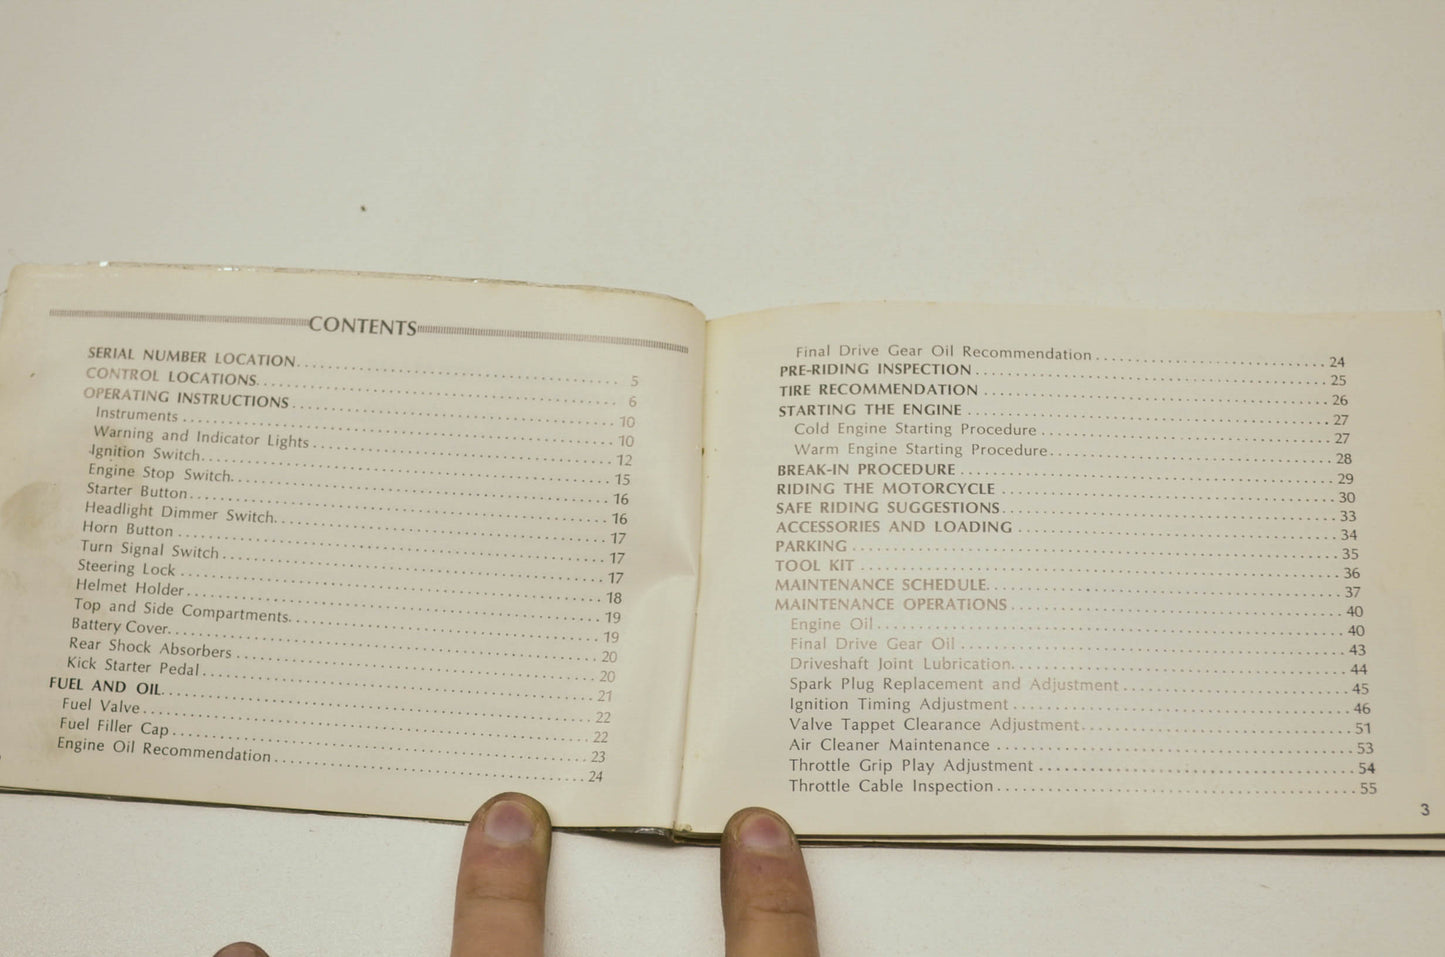 CONTENTS
SERIAL NUMBER LOCATION........ 5
CONTROL LOCATIONS........ 6
OPERATING INSTRUCTIONS........ 10
Instruments........ 10
Warning and Indicator Lights........ 12
Ignition Switch........ 15
Engine Stop Switch........ 16
Starter Button........ 16
Headlight Dimmer Switch........ 17
Horn Button........ 17
Turn Signal Switch........ 17
Steering Lock........ 18
Helmet Holder........ 19
Top and Side Compartments........ 19
Battery Cover........ 20
Rear Shock Absorbers........ 20
Kick Starter Pedal........ 21
FUEL AND OIL........ 22
Fuel Valve........ 22
Fuel Filler Cap........ 23
Engine Oil Recommendation........ 24
Final Drive Gear Oil Recommendation........ 24
PRE-RIDING INSPECTION........ 25
TIRE RECOMMENDATION........ 26
STARTING THE ENGINE........ 27
Cold Engine Starting Procedure........ 27
Warm Engine Starting Procedure........ 28
BREAK-IN PROCEDURE........ 29
RIDING THE MOTORCYCLE........ 30
SAFE RIDING SUGGESTIONS........ 33
ACCESSORIES AND LOADING........ 34
PARKING........ 35
TOOL KIT........ 36
MAINTENANCE SCHEDULE........ 37
MAINTENANCE OPERATIONS........ 40
Engine Oil........ 40
Final Drive Gear Oil........ 43
Driveshaft Joint Lubrication........ 44
Spark Plug Replacement and Adjustment........ 45
Ignition Timing Adjustment........ 46
Valve Tappet Clearance Adjustment........ 51
Air Cleaner Maintenance........ 53
Throttle Grip Play Adjustment........ 54
Throttle Cable Inspection........ 55
3